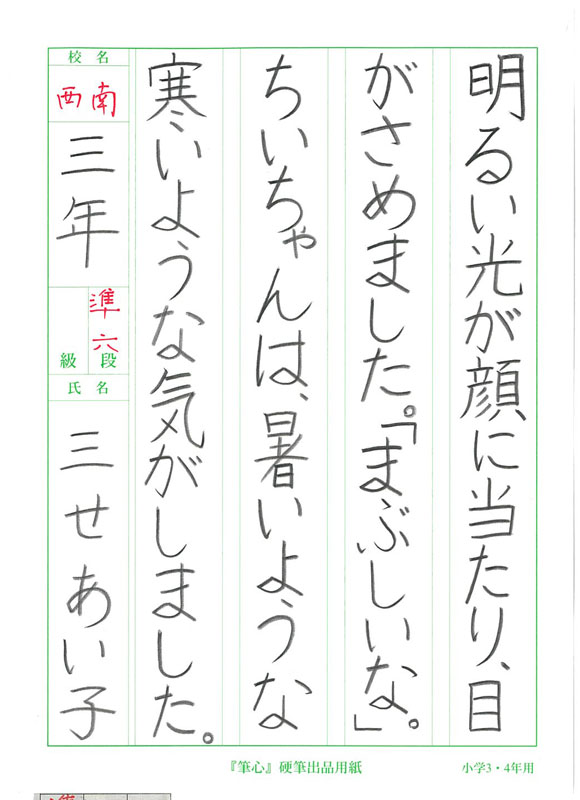 明るい光が顔に当たり、目
がさめました。「まぶしいな。」
ちいちゃんは、暑いような
寒いような気がしました。
校名
西南
三年
準六
級段
氏名
三せあい子
『筆心』硬筆出品用紙
小学3・4年用